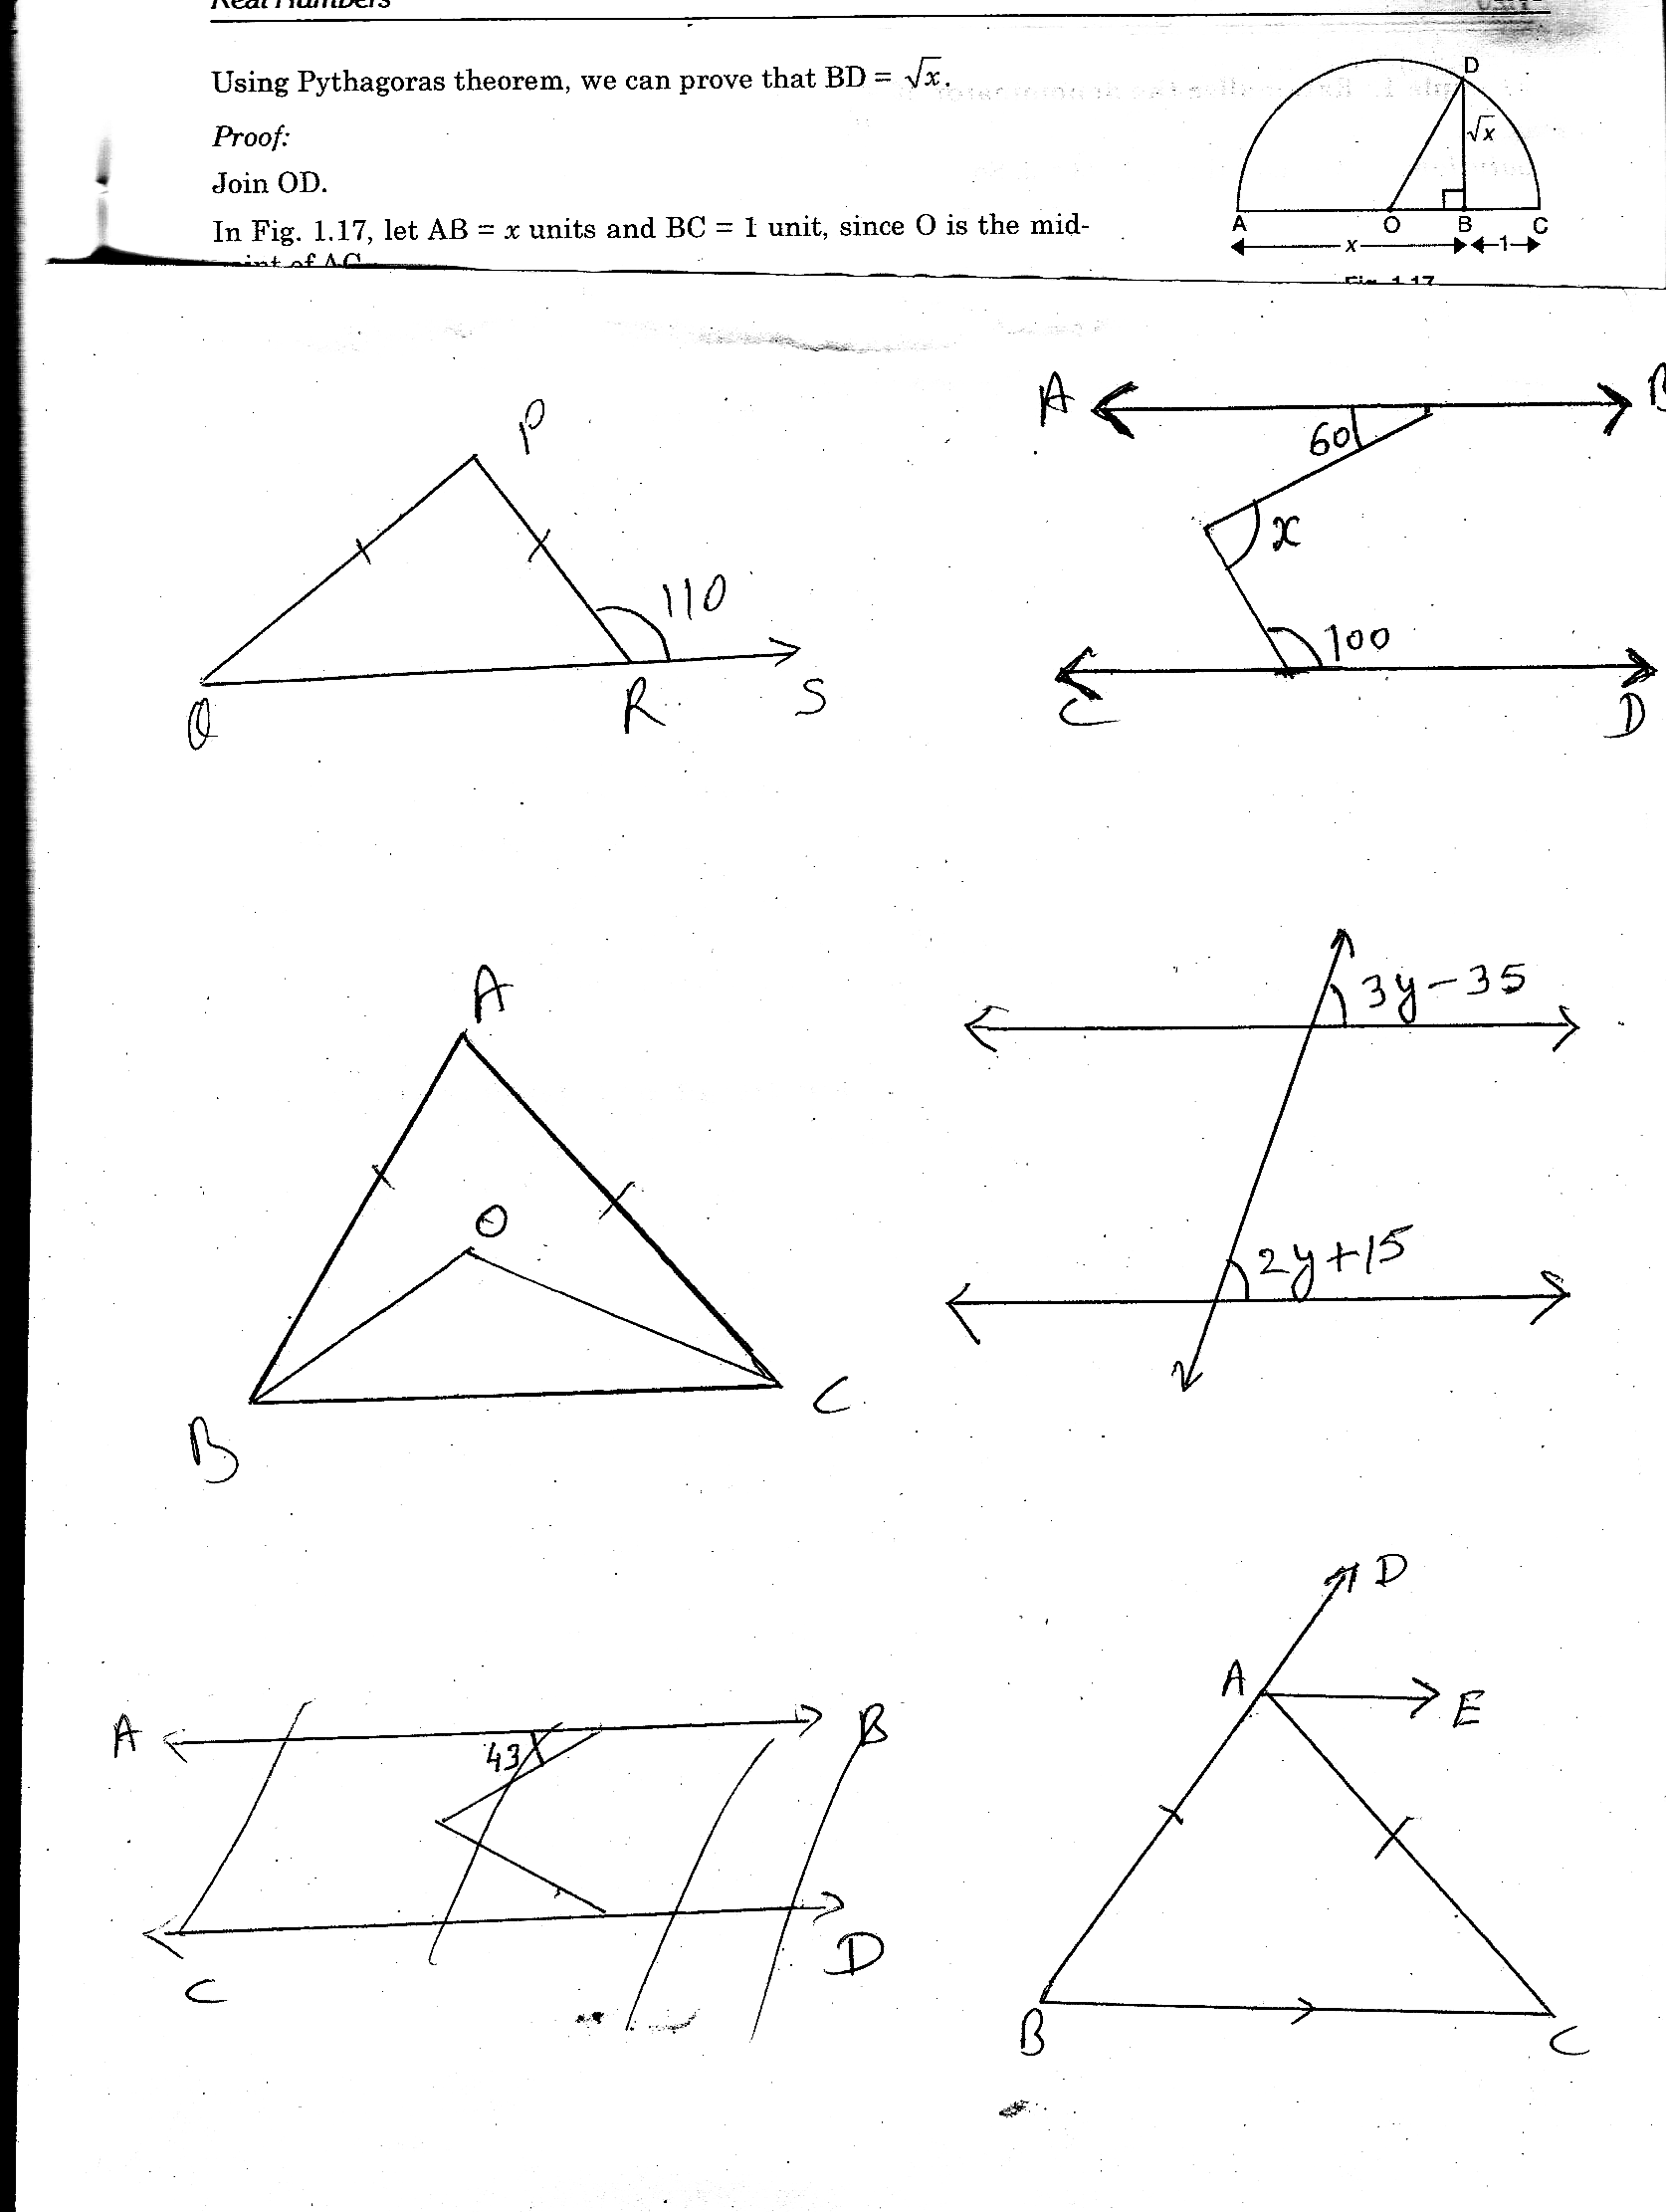 Real Numbers
Using Pythagoras theorem, we can prove that BD = √x.
Proof:
Join OD.
In Fig. 1.17, let AB = x units and BC = 1 unit, since O is the mid-
of AC
D
√x
A O B C
x 1
Fig. 1.17
P
110
Q R S
A
60
x
100
C D
A
O
B C
3y-35
2y+15
A B
43
C D
D
A E
B C